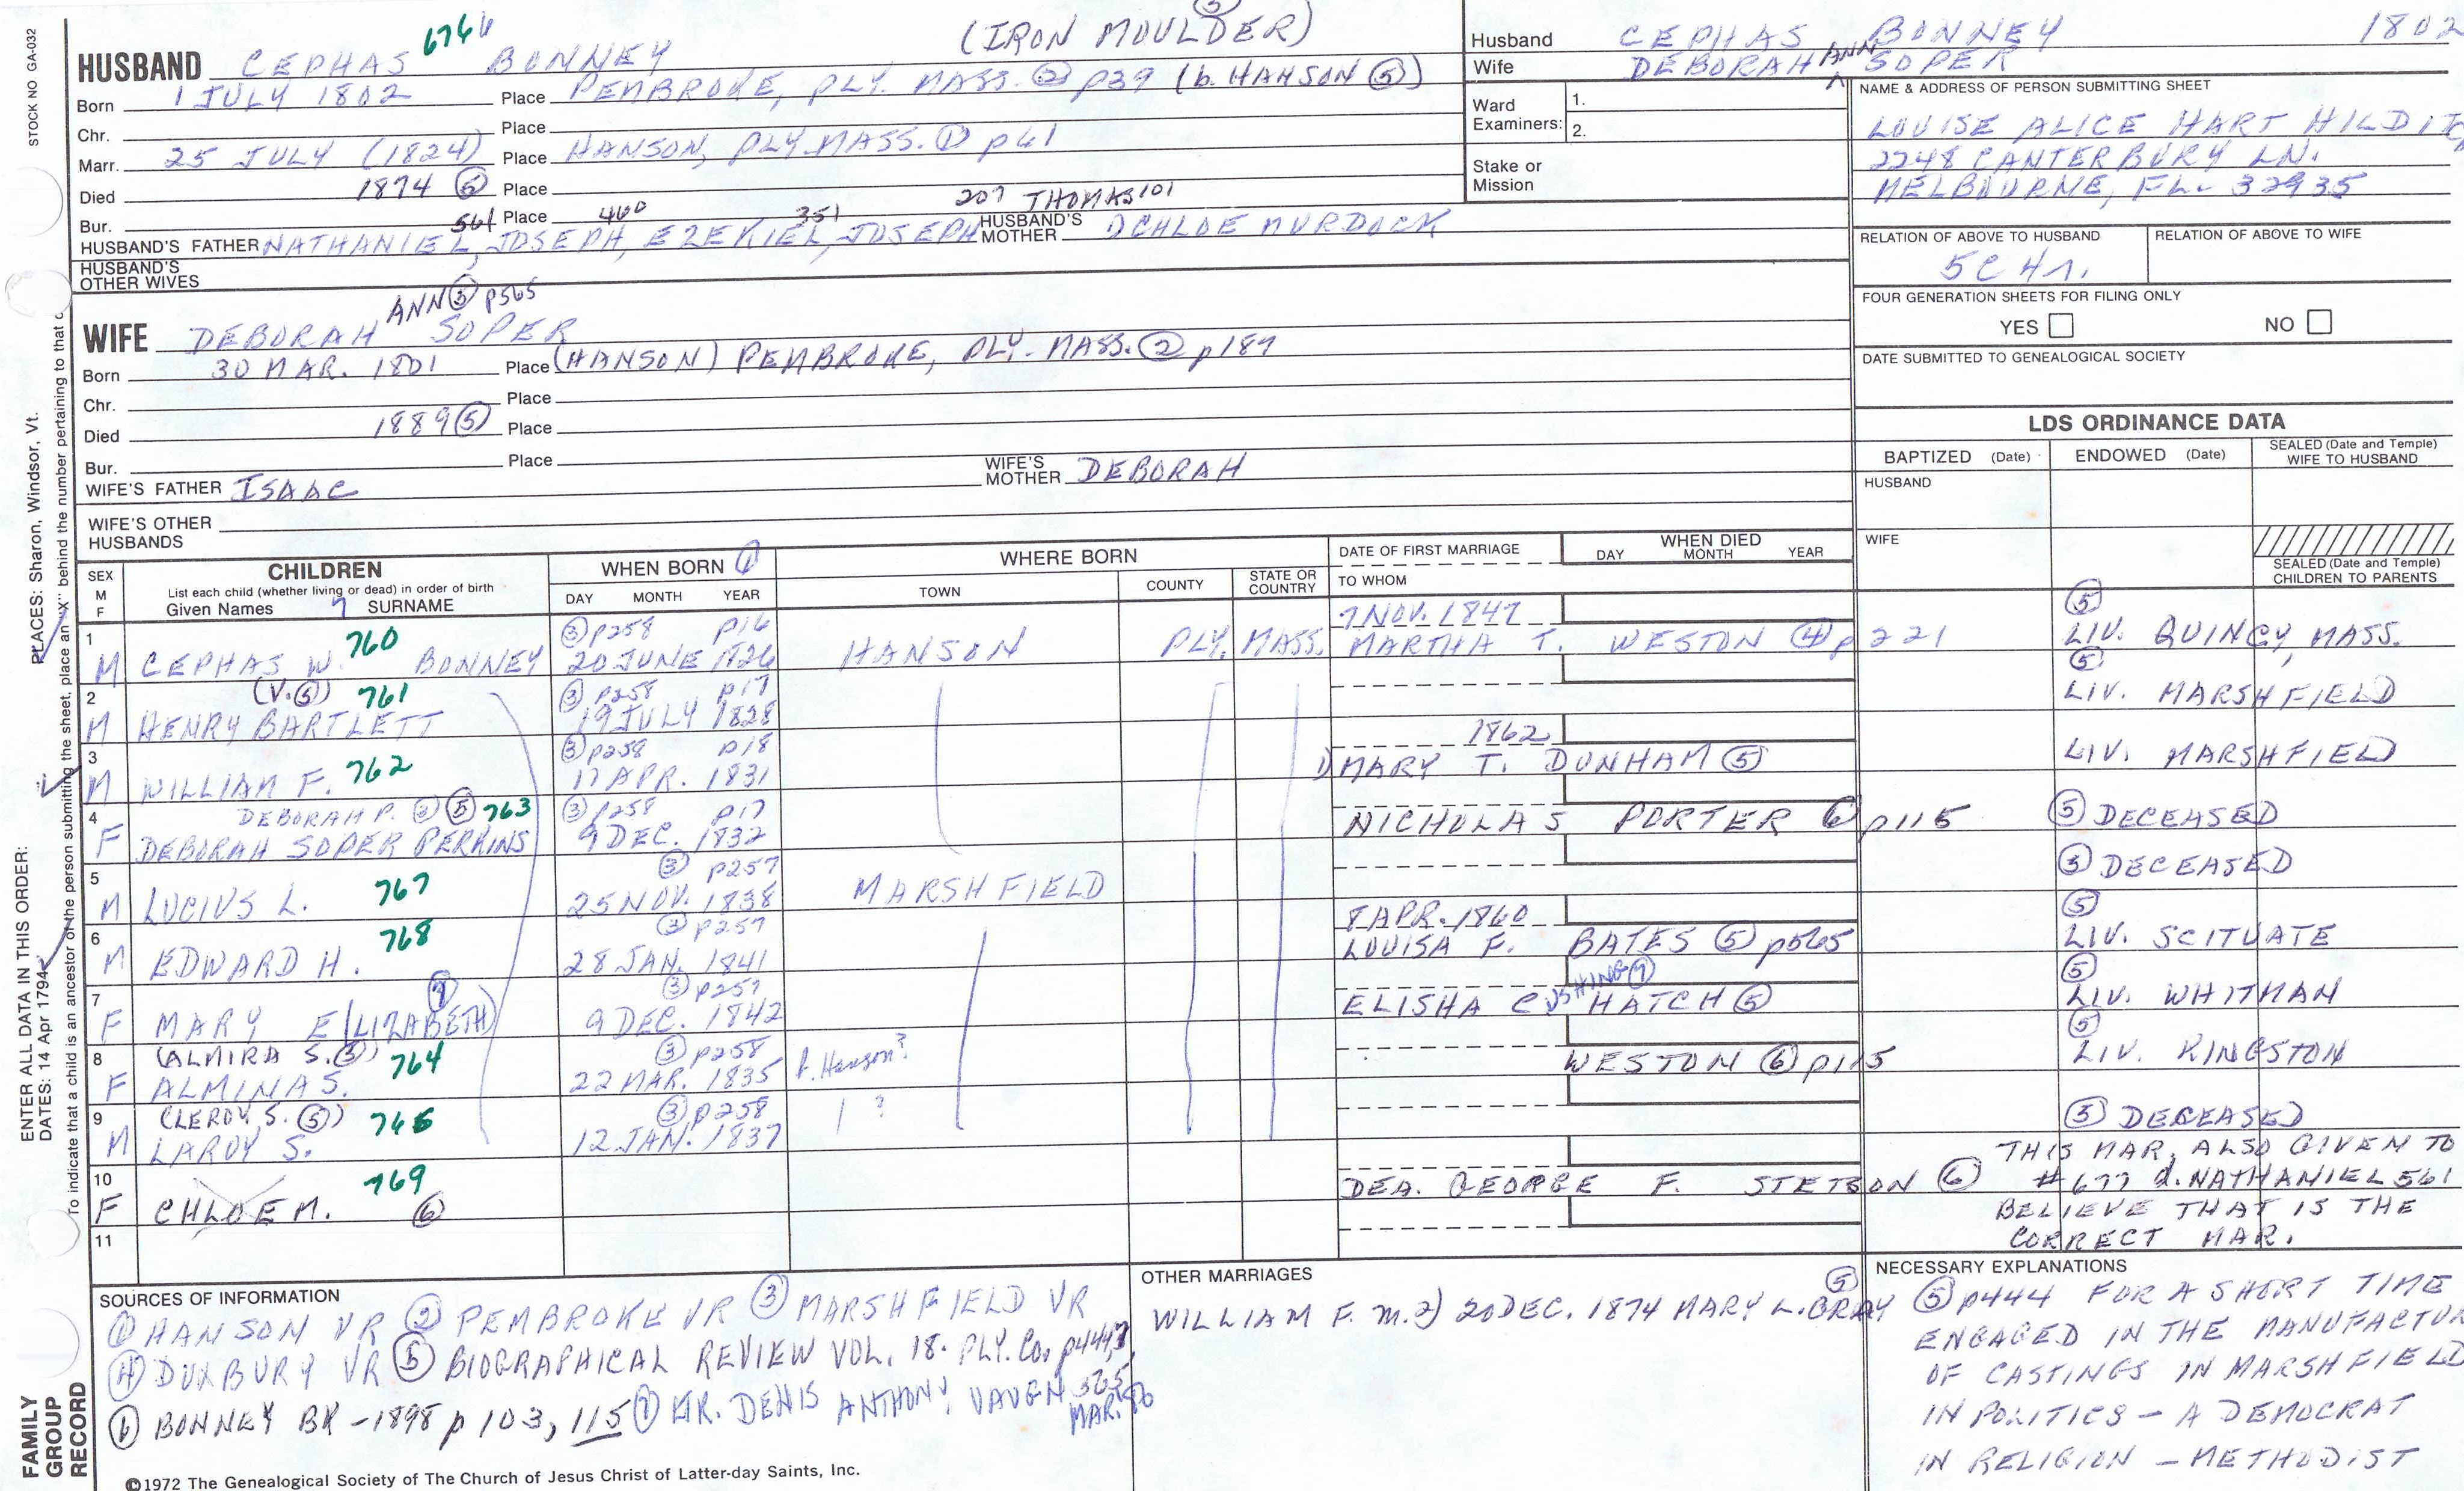 STOCK NO GA-032
PLACES: Sharon, Windsor, Vt.
ENTER ALL DATA IN THIS ORDER:
DATES: 14 Apr 1794
To indicate that a child is an ancestor of the person submitting the sheet, place an "X" behind the number pertaining to that c
FAMILY
GROUP
RECORD
(IRON MOULDER) 5
HUSBAND CEPHAS BONNEY
Born 1 JULY 1802 Place PEMBROKE, PLY. MASS. 2 p39 (b. HANSON 5)
Chr. Place
Marr. 25 JULY (1824) Place HANSON, PLY. MASS. 1 p61
Died 1874 5 Place
Bur. Place
561 460 351 207 THOMAS 101
HUSBAND'S FATHER NATHANIEL, JOSEPH, EZEKIEL, JOSEPH HUSBAND'S MOTHER CHLOE MURDOCK
HUSBAND'S
OTHER WIVES
ANN 5 p565
WIFE DEBORAH SOPER
Born 30 MAR. 1801 Place (HANSON) PEMBROKE, PLY. MASS. 2 p187
Chr. Place
Died 1889 5 Place
Bur. Place
WIFE'S FATHER ISAAC WIFE'S MOTHER DEBORAH
WIFE'S OTHER
HUSBANDS
Husband CEPHAS BONNEY 1802
Wife DEBORAH ANN SOPER
Ward
Examiners: 1.
2.
Stake or
Mission
NAME & ADDRESS OF PERSON SUBMITTING SHEET
LOUISE ALICE HART
2248 CANTERBURY LN.
MELBOURNE, FL. 32935
RELATION OF ABOVE TO HUSBAND RELATION OF ABOVE TO WIFE
5C 4r.
FOUR GENERATION SHEETS FOR FILING ONLY
YES NO
DATE SUBMITTED TO GENEALOGICAL SOCIETY
LDS ORDINANCE DATA
BAPTIZED (Date) ENDOWED (Date) SEALED (Date and Temple) WIFE TO HUSBAND
HUSBAND
WIFE
SEALED (Date and Temple)
CHILDREN TO PARENTS
SEX M F CHILDREN WHEN BORN 1 WHERE BORN DATE OF FIRST MARRIAGE WHEN DIED
List each child (whether living or dead) in order of birth
Given Names SURNAME DAY MONTH YEAR TOWN COUNTY STATE OR COUNTRY TO WHOM DAY MONTH YEAR
1 760 3 p258 p16 7 NOV. 1847 5
M CEPHAS W. BONNEY 20 JUNE 1826 HANSON PLY. MASS. MARTHA T. WESTON 4 p221 LIV. QUINCY, MASS.
2 (V. 5) 761 3 p258 p17 5
M HENRY BARTLETT 19 JULY 1828 LIV. MARSHFIELD
3 762 3 p258 p18 1862
M WILLIAM F. 17 APR. 1831 1) MARY T. DUNHAM 5 LIV. MARSHFIELD
4 DEBORAH P. 3 5 763 3 p258 p17
F DEBORAH SOPER PERKINS 9 DEC. 1832 NICHOLAS PORTER 6 p115 5 DECEASED
5 767 3 p257
M LUCIUS L. 25 NOV. 1838 MARSHFIELD 5 DECEASED
6 768 3 p257 8 APR. 1860 5
M EDWARD H. 28 JAN. 1841 LOUISA F. BATES 5 p565 LIV. SCITUATE
7 7 3 p257 5
F MARY E(LIZABETH) 9 DEC. 1842 ELISHA CUSHING 7 HATCH 5 LIV. WHITMAN
8 (ALMIRA S. 5) 764 3 p258 5
F ALMINA S. 22 MAR. 1835 p. Hanson? WESTON 6 p115 LIV. KINGSTON
9 (LEROY S. 5) 3 p258
M LAROY S. 12 JAN. 1837 ? 5 DECEASED
10 769
F CHLOE M. 6 DEA. GEORGE F. STETSON 6
THIS MAR. ALSO GIVEN TO
#677 d. NATHANIEL 561
BELIEVE THAT IS THE
CORRECT MAR.
11
SOURCES OF INFORMATION
1 HANSON VR 2 PEMBROKE VR 3 MARSHFIELD VR
4 DUXBURY VR 5 BIOGRAPHICAL REVIEW VOL. 18. PLY. Co.
6 BONNEY BK - 1898 p 103, 115 7 DENIS ANTHONY VAUGN
OTHER MARRIAGES
WILLIAM F. m. 2) 20 DEC. 1874 MARY L. GRAY 5
NECESSARY EXPLANATIONS
5 p444 FOR A SHORT TIME
ENGAGED IN THE MANUFACTUR
OF CASTINGS IN MARSHFIELD
IN POLITICS - A DEMOCRAT
IN RELIGION - METHODIST
©1972 The Genealogical Society of The Church of Jesus Christ of Latter-day Saints, Inc.